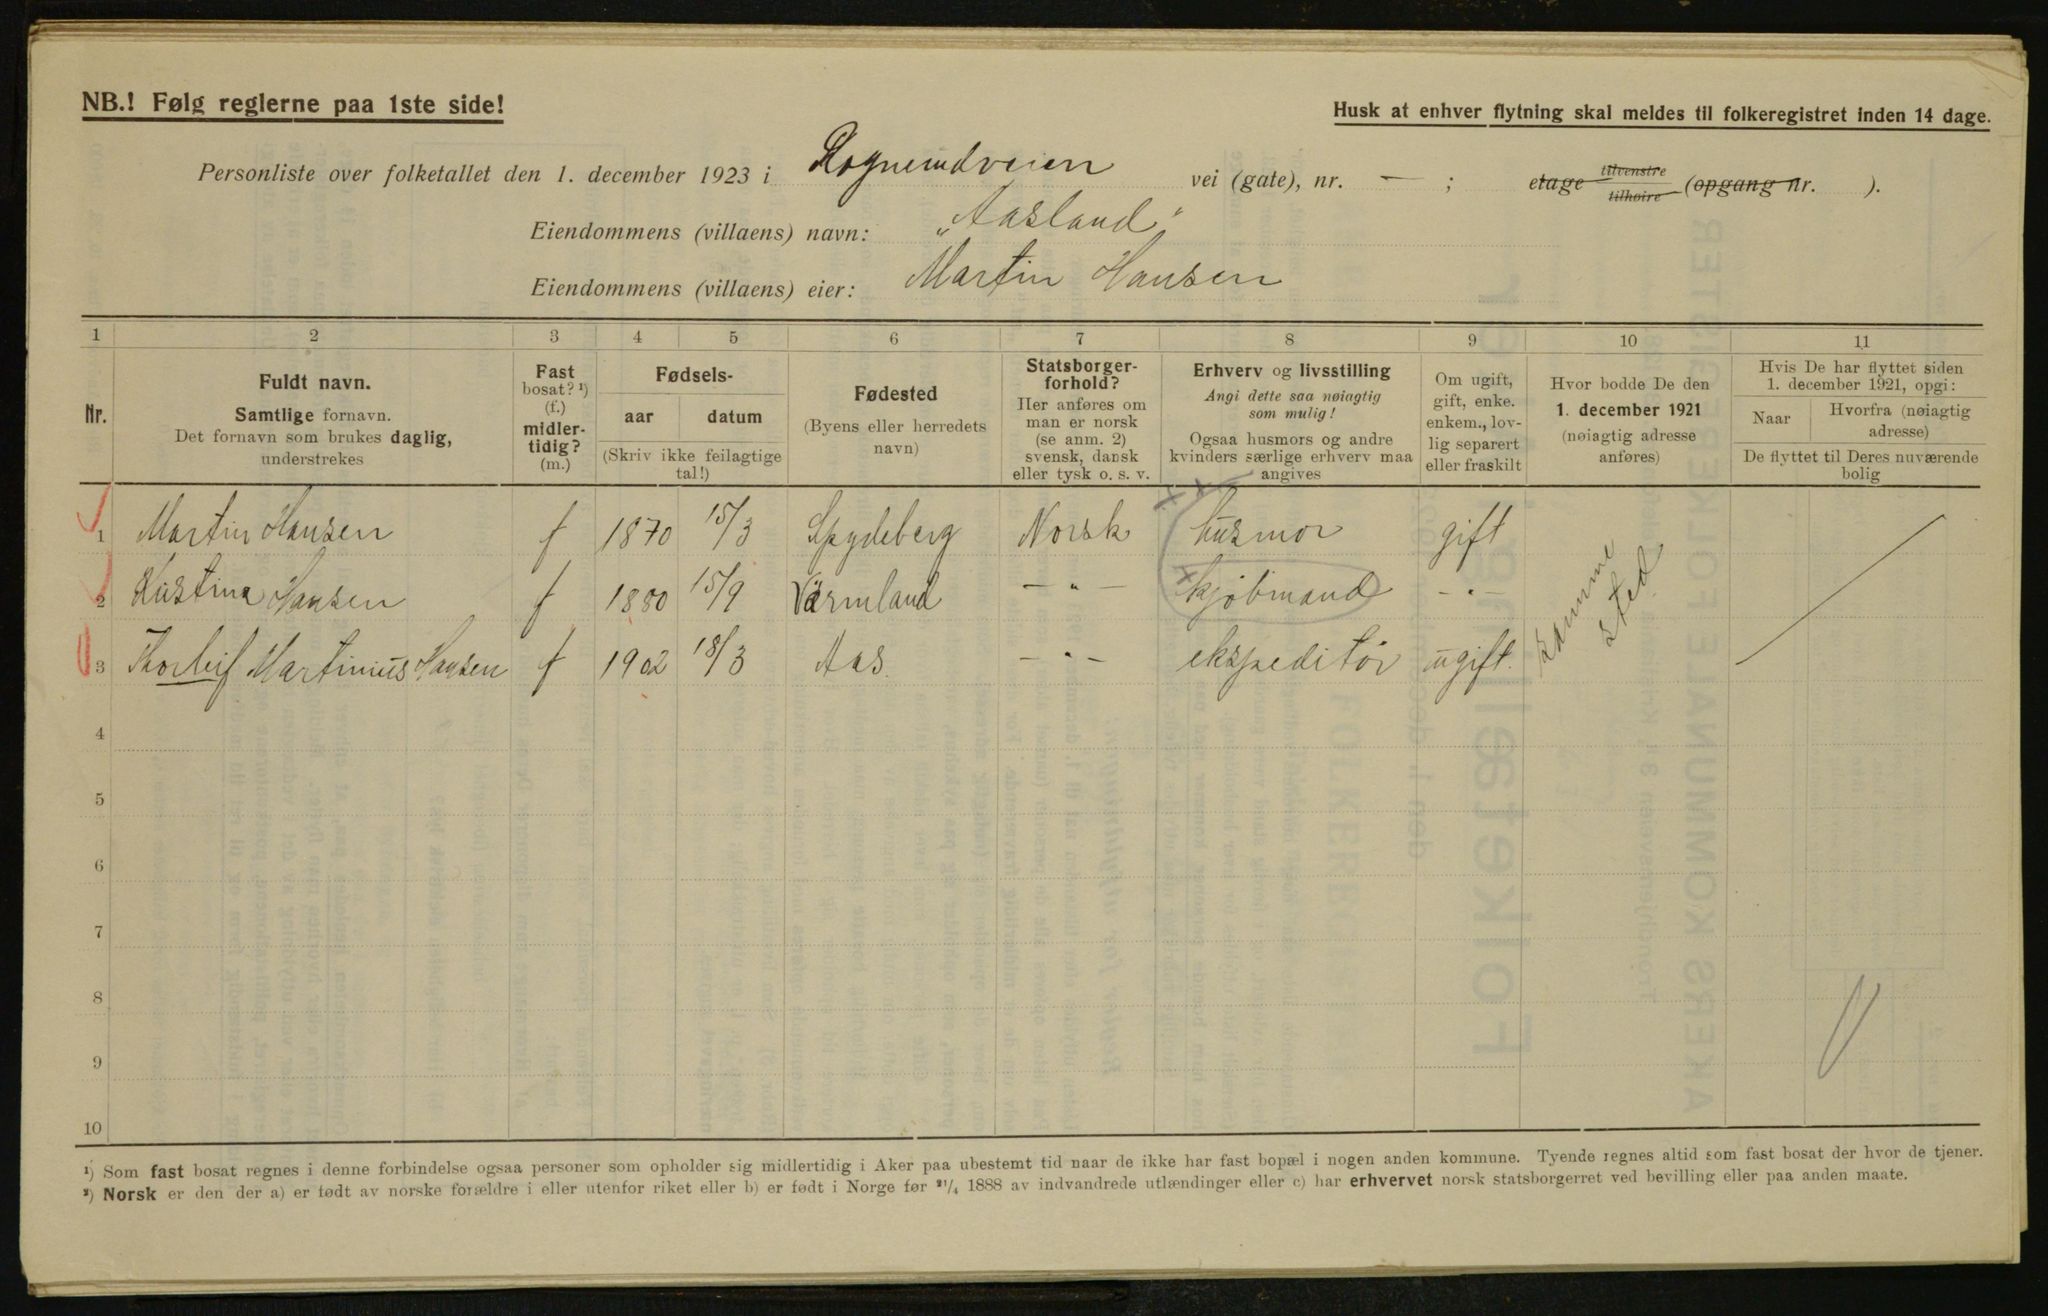 NB.! Følg reglerne paa 1ste side!
Husk at enhver flytning skal meldes til folkeregistret inden 14 dage.
Personliste over folketallet den 1. december 1923 i Rognerudveien vei (gate), nr. — ; etage tilvenstre tilhøire (opgang nr. ).
Eiendommens (villaens) navn: „Aasland“
Eiendommens (villaens) eier: Martin Hansen
1 2 3 4 5 6 7 8 9 10 11
Nr.
Fuldt navn.
Samtlige fornavn.
Det fornavn som brukes daglig,
understrekes
Fast
bosat? ¹)
(f.)
midler-
tidig?
(m.)
Fødsels-
aar datum
(Skriv ikke feilagtige
tal!)
Fødested
(Byens eller herredets
navn)
Statsborger-
forhold?
Her anføres om
man er norsk
(se anm. 2)
svensk, dansk
eller tysk o. s. v.
Erhverv og livsstilling
Angi dette saa nøiagtig
som mulig!
Ogsaa husmors og andre
kvinders særlige erhverv maa
angives
Om ugift,
gift, enke.
enkem., lov-
lig separert
eller fraskilt
Hvor bodde De den
1. december 1921
(nøiagtig adresse
anføres)
Hvis De har flyttet siden
1. december 1921, opgi:
Naar
Hvorfra (nøiagtig
adresse)
De flyttet til Deres nuværende
bolig
1 Martin Hansen f 1870 15/3 Spydeberg Norsk husmor gift
2 Kristina Hansen f 1880 15/9 Värmland — „ — kjöbmand — „ —
3 Thorleif Martinius Hansen f 1902 18/3 Aas — „ — ekspeditör ugift.
Samme
sted
4
5
6
7
8
9
10
¹) Som fast bosat regnes i denne forbindelse ogsaa personer som opholder sig midlertidig i Aker paa ubestemt tid naar de ikke har fast bopæl i nogen anden kommune. Tyende regnes altid som fast bosat der hvor de tjener.
²) Norsk er den der a) er født av norske forældre i eller utenfor riket eller b) er født i Norge før ²¹/₄ 1888 av indvandrede utlændinger eller c) har erhvervet norsk statsborgerret ved bevilling eller paa anden maate.